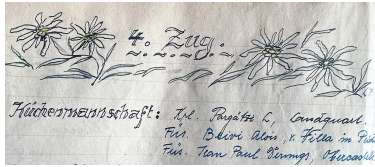 4. Zug.
Küchenmannschaft: Kpl. Pargätzi L, Landquart.
Füs. Beivi Alois, z. Villa in Pich
Füs. Jean Paul